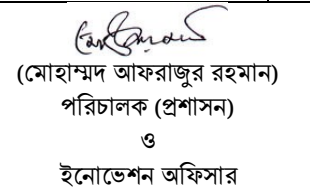 (মোহাম্মদ আফরাজুর রহমান)
পরিচালক (প্রশাসন)
ও
ইনোভেশন অফিসার